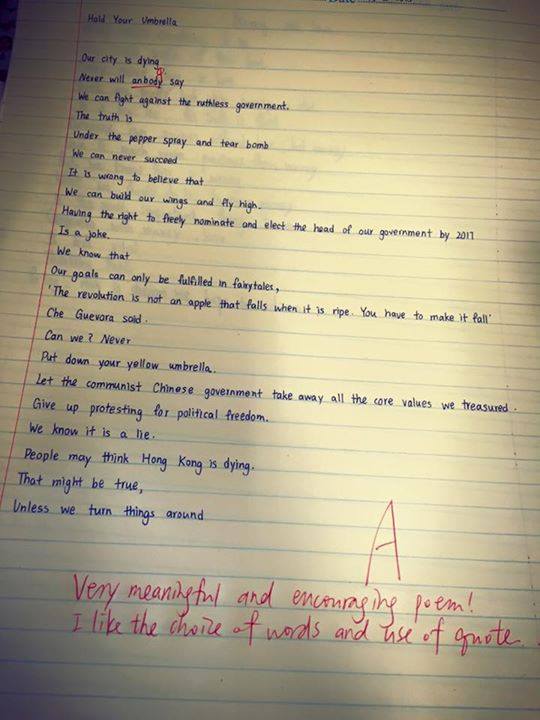 Hold Your Umbrella
Our city is dying
Never will anbody say
We can fight against the ruthless government.
The truth is
Under the pepper spray and tear bomb
We can never succeed
It is wrong to believe that
We can build our wings and fly high.
Having the right to freely nominate and elect the head of our government by 2017
Is a joke.
We know that
Our goals can only be fulfilled in fairytales,
'The revolution is not an apple that falls when it is ripe. You have to make it fall'
Che Guevara said.
Can we? Never
Put down your yellow umbrella.
Let the communist Chinese government take away all the core values we treasured.
Give up protesting for political freedom.
We know it is a lie.
People may think Hong Kong is dying.
That might be true,
Unless we turn things around
A
Very meaningful and encouraging poem!
I like the choice of words and use of quote.